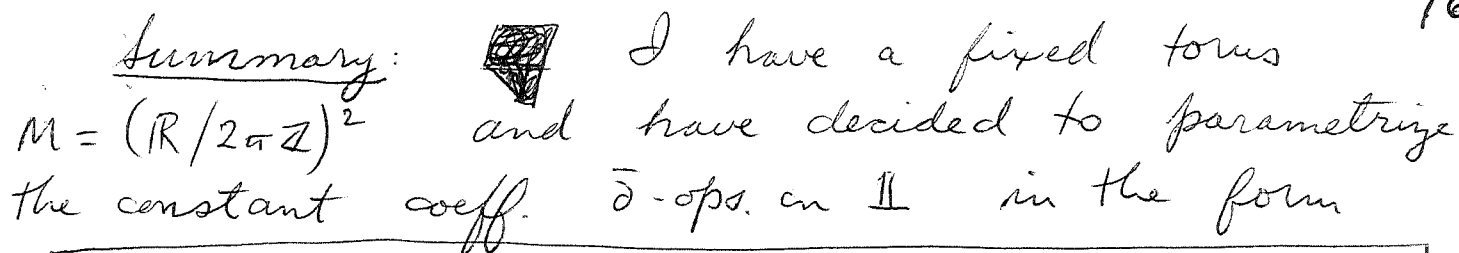 Summary: I have a fixed torus
M = (ℝ/2πℤ)² and have decided to parametrize
the constant coeff. ∂̄-ops. on 𝟙 in the form